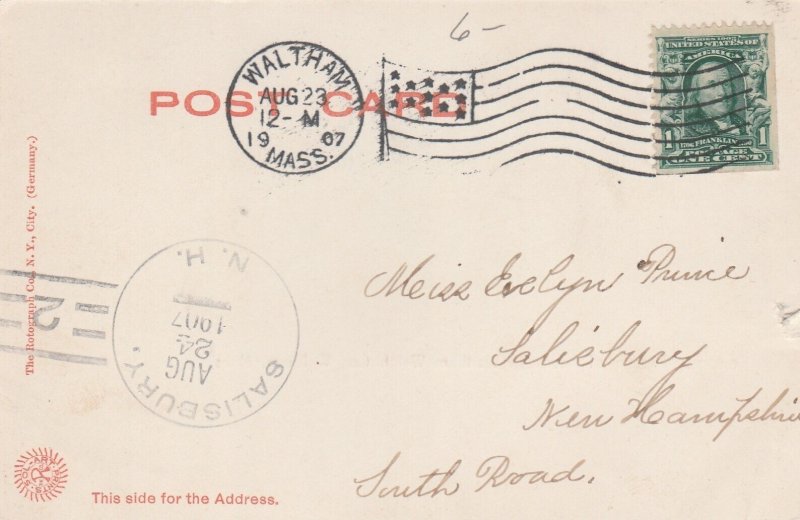 6-
POST CARD
WALTHAM
AUG 23
12-M
19 07
MASS.
SERIES 1902
UNITED STATES OF
AMERICA
1 1
FRANKLIN
POSTAGE
ONE CENT
The Rotograph Co., N. Y., City. (Germany.)
N. H.
1907
24
AUG
SALISBURY.
2
Miss Evelyn Prince
Salisbury
New Hampshire
South Road.
SOL-ART PRINTS
This side for the Address.